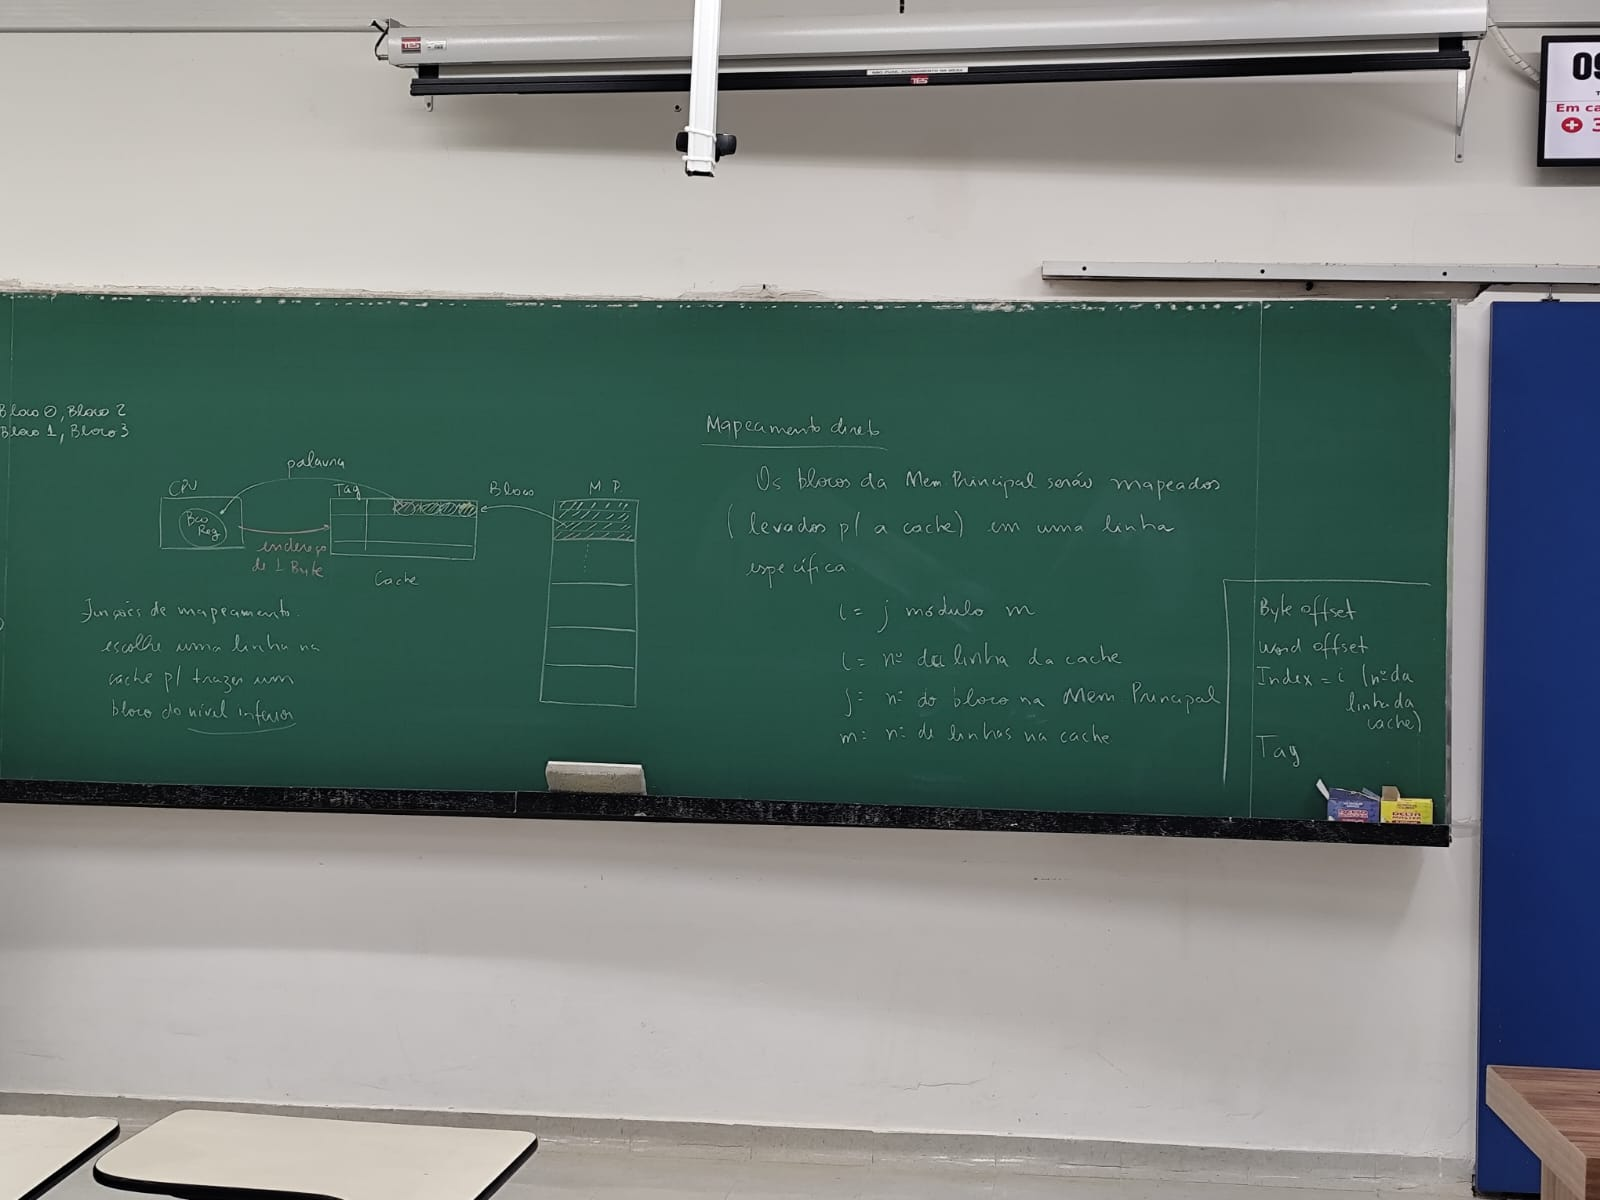 TES
TES
09
Em ca
3
Bloco 0, Bloco 2
Bloco 1, Bloco 3
palavra
CPU
Bco
Reg
endereço
de 1 Byte
Tag
Cache
Bloco
M. P.
Funções de mapeamento.
escolhe uma linha na
cache p/ trazer um
bloco do nível inferior
Mapeamento direto
Os blocos da Mem Principal serão mapeados
(levados p/ a cache) em uma linha
específica
i = j módulo m
i = nº da linha da cache
j = nº do bloco na Mem Principal
m = nº de linhas na cache
Byte offset
Word offset
Index = i (nº da
linha da
cache)
Tag
DELTA